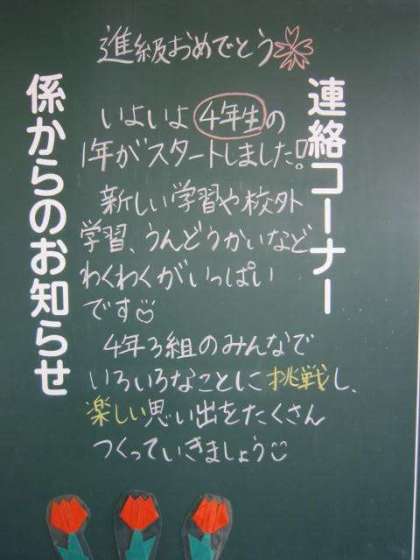 進級おめでとう
連絡コーナー
いよいよ4年生の
1年がスタートしました!
新しい学習や校外
学習、うんどうかいなど
わくわくがいっぱい
です
4年3組のみんなで
いろいろなことに挑戦し、
楽しい思い出をたくさん
つくっていきましょう
係からのお知らせ